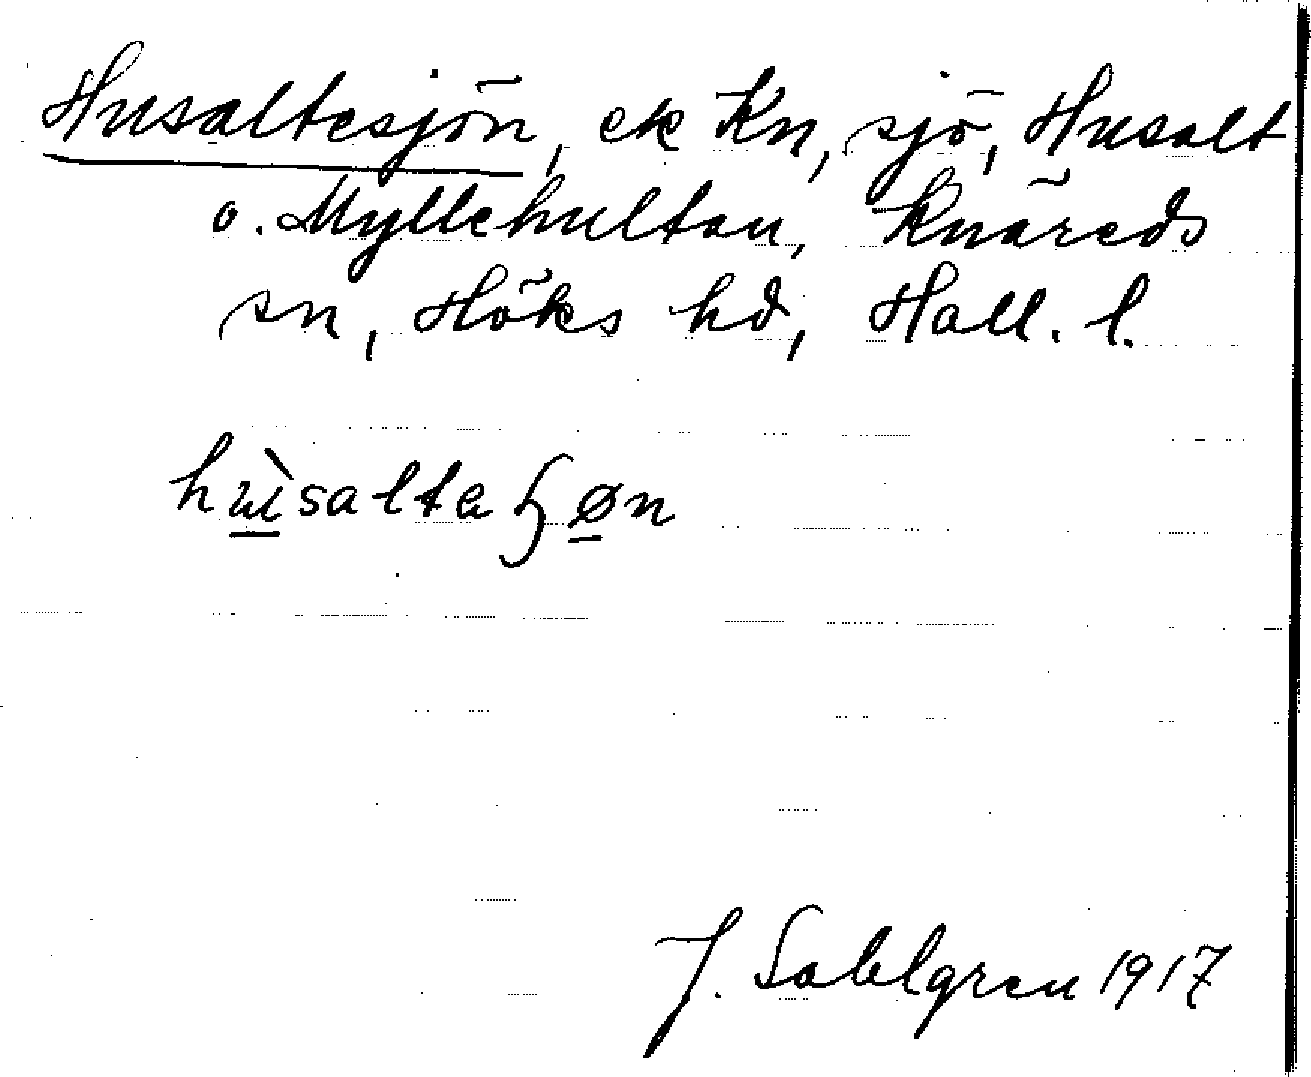 Husaltesjön, ek Kn, sjö, Husalt
o. Myllehultau, Knäreds
sn, Höks hd, Hall. l.
hùsalteɧøn
J. Sahlgren 1917